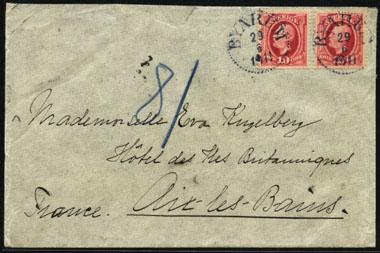 SVERIGE
29
6
1911
10
29
6
1911
8/
Mademoiselle Eva Kugelberg
Hôtel des Iles Britanniques
France. Aix-les-Bains.